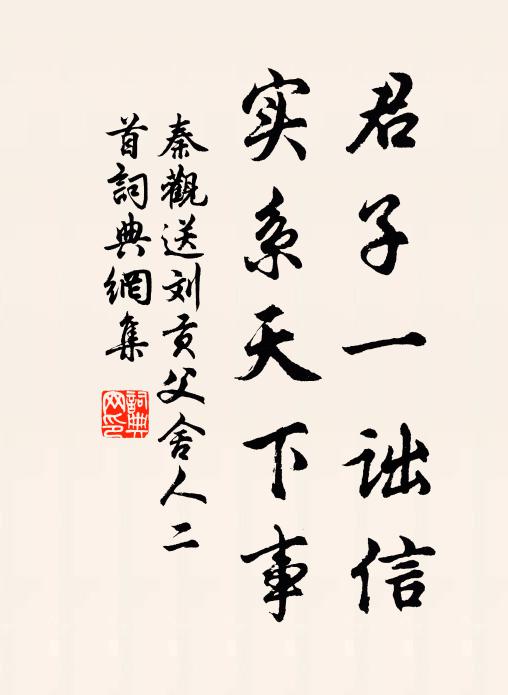 君子一诎信
实系天下事
秦觀送刘贡父舍人二
首詞典網集
詞典
网印